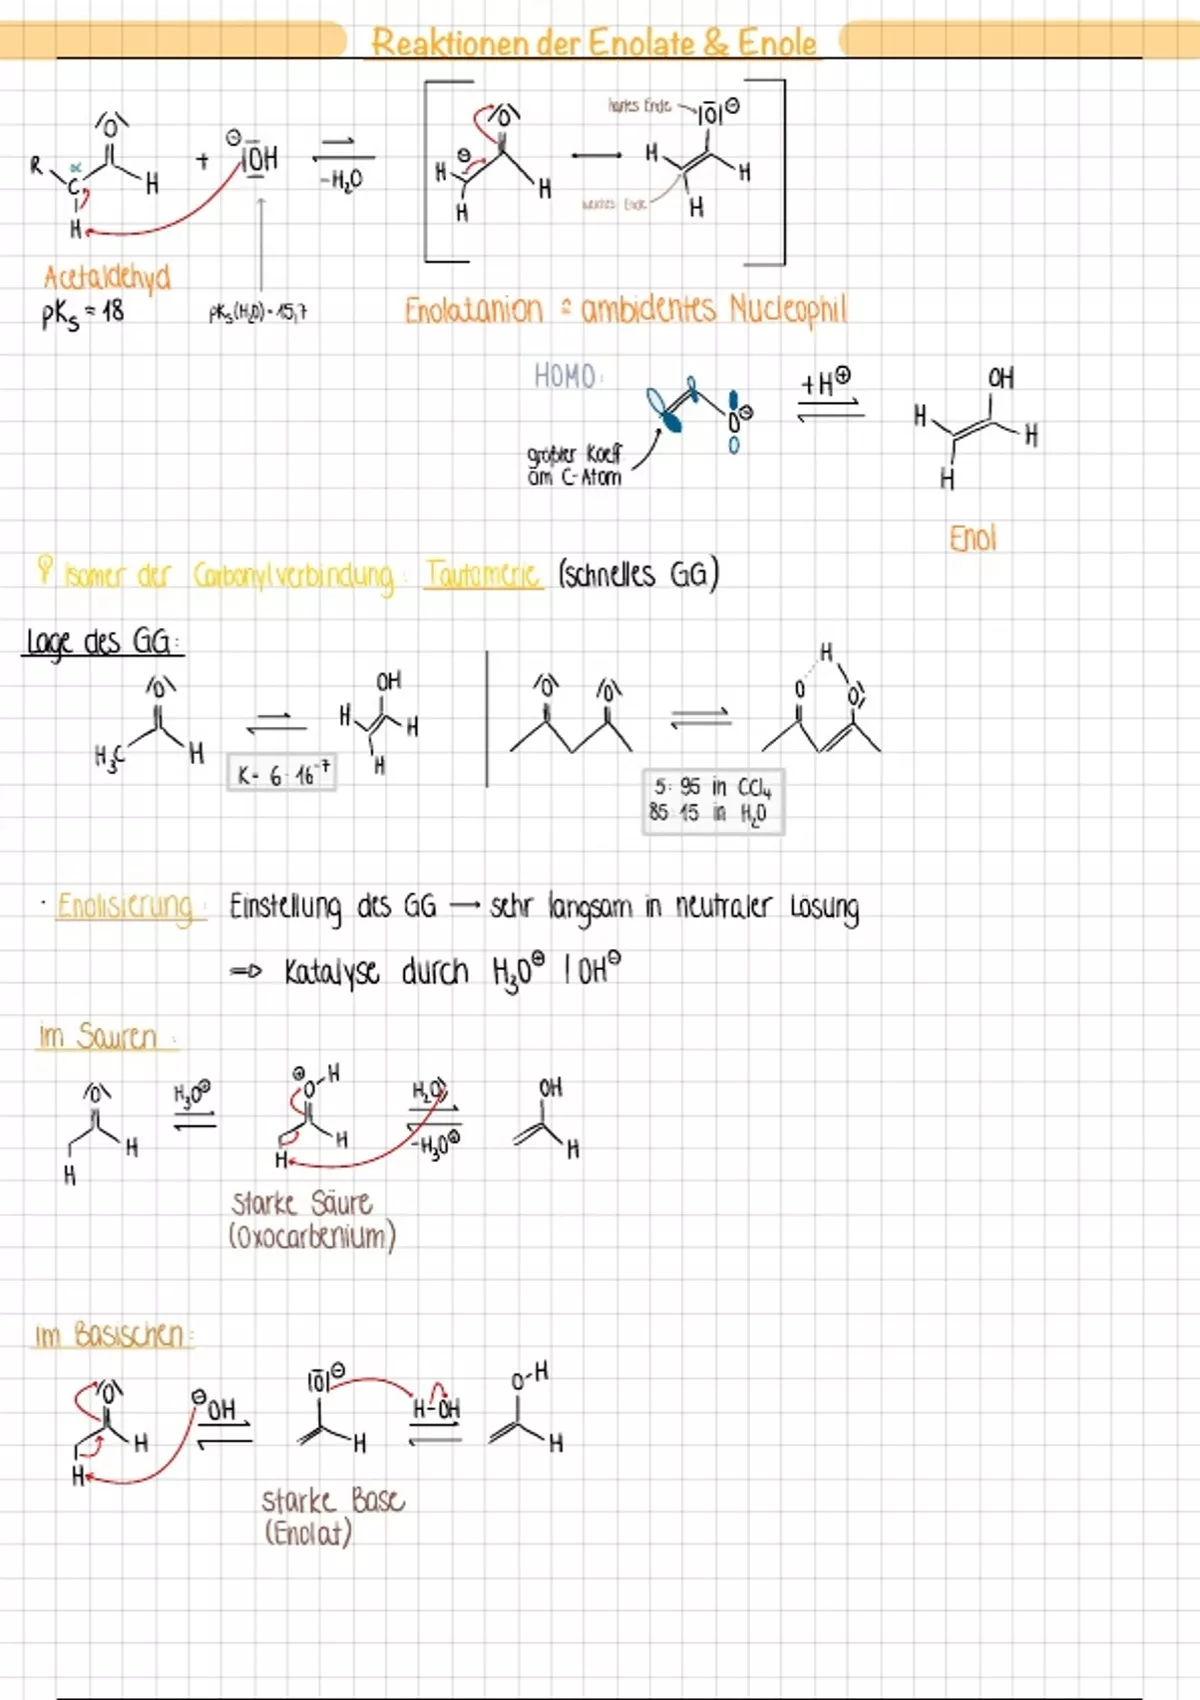 Reaktionen der Enolate & Enole
hartes Ende
|O|⊖
O
R α C H H + ⊖|OH -H₂O
H ⊖ H H
H H H
weiches Ende
Acetaldehyd
pKs = 18
pKs(H₂O) = 15,7
Enolatanion ≙ ambidentes Nucleophil
HOMO:
O⊖
+H⊕
OH
H H H
größter Koeff
am C-Atom
Enol
Isomer der Carbonylverbindung: Tautomerie (schnelles GG)
Lage des GG:
O H₃C H
OH H H H
K= 6·16⁻⁷
O O
H O O
5:95 in CCl₄
85:15 in H₂O
· Enolisierung: Einstellung des GG → sehr langsam in neutraler Lösung
⇒ Katalyse durch H₃O⊕ | OH⊖
im Sauren:
O H H
H₃O⊕
⊕ O-H H H
H₂O
-H₃O⊕
OH H
starke Säure
(Oxocarbenium)
im Basischen:
O H H
⊖OH
|O|⊖ H
H-OH
O-H H
starke Base
(Enolat)